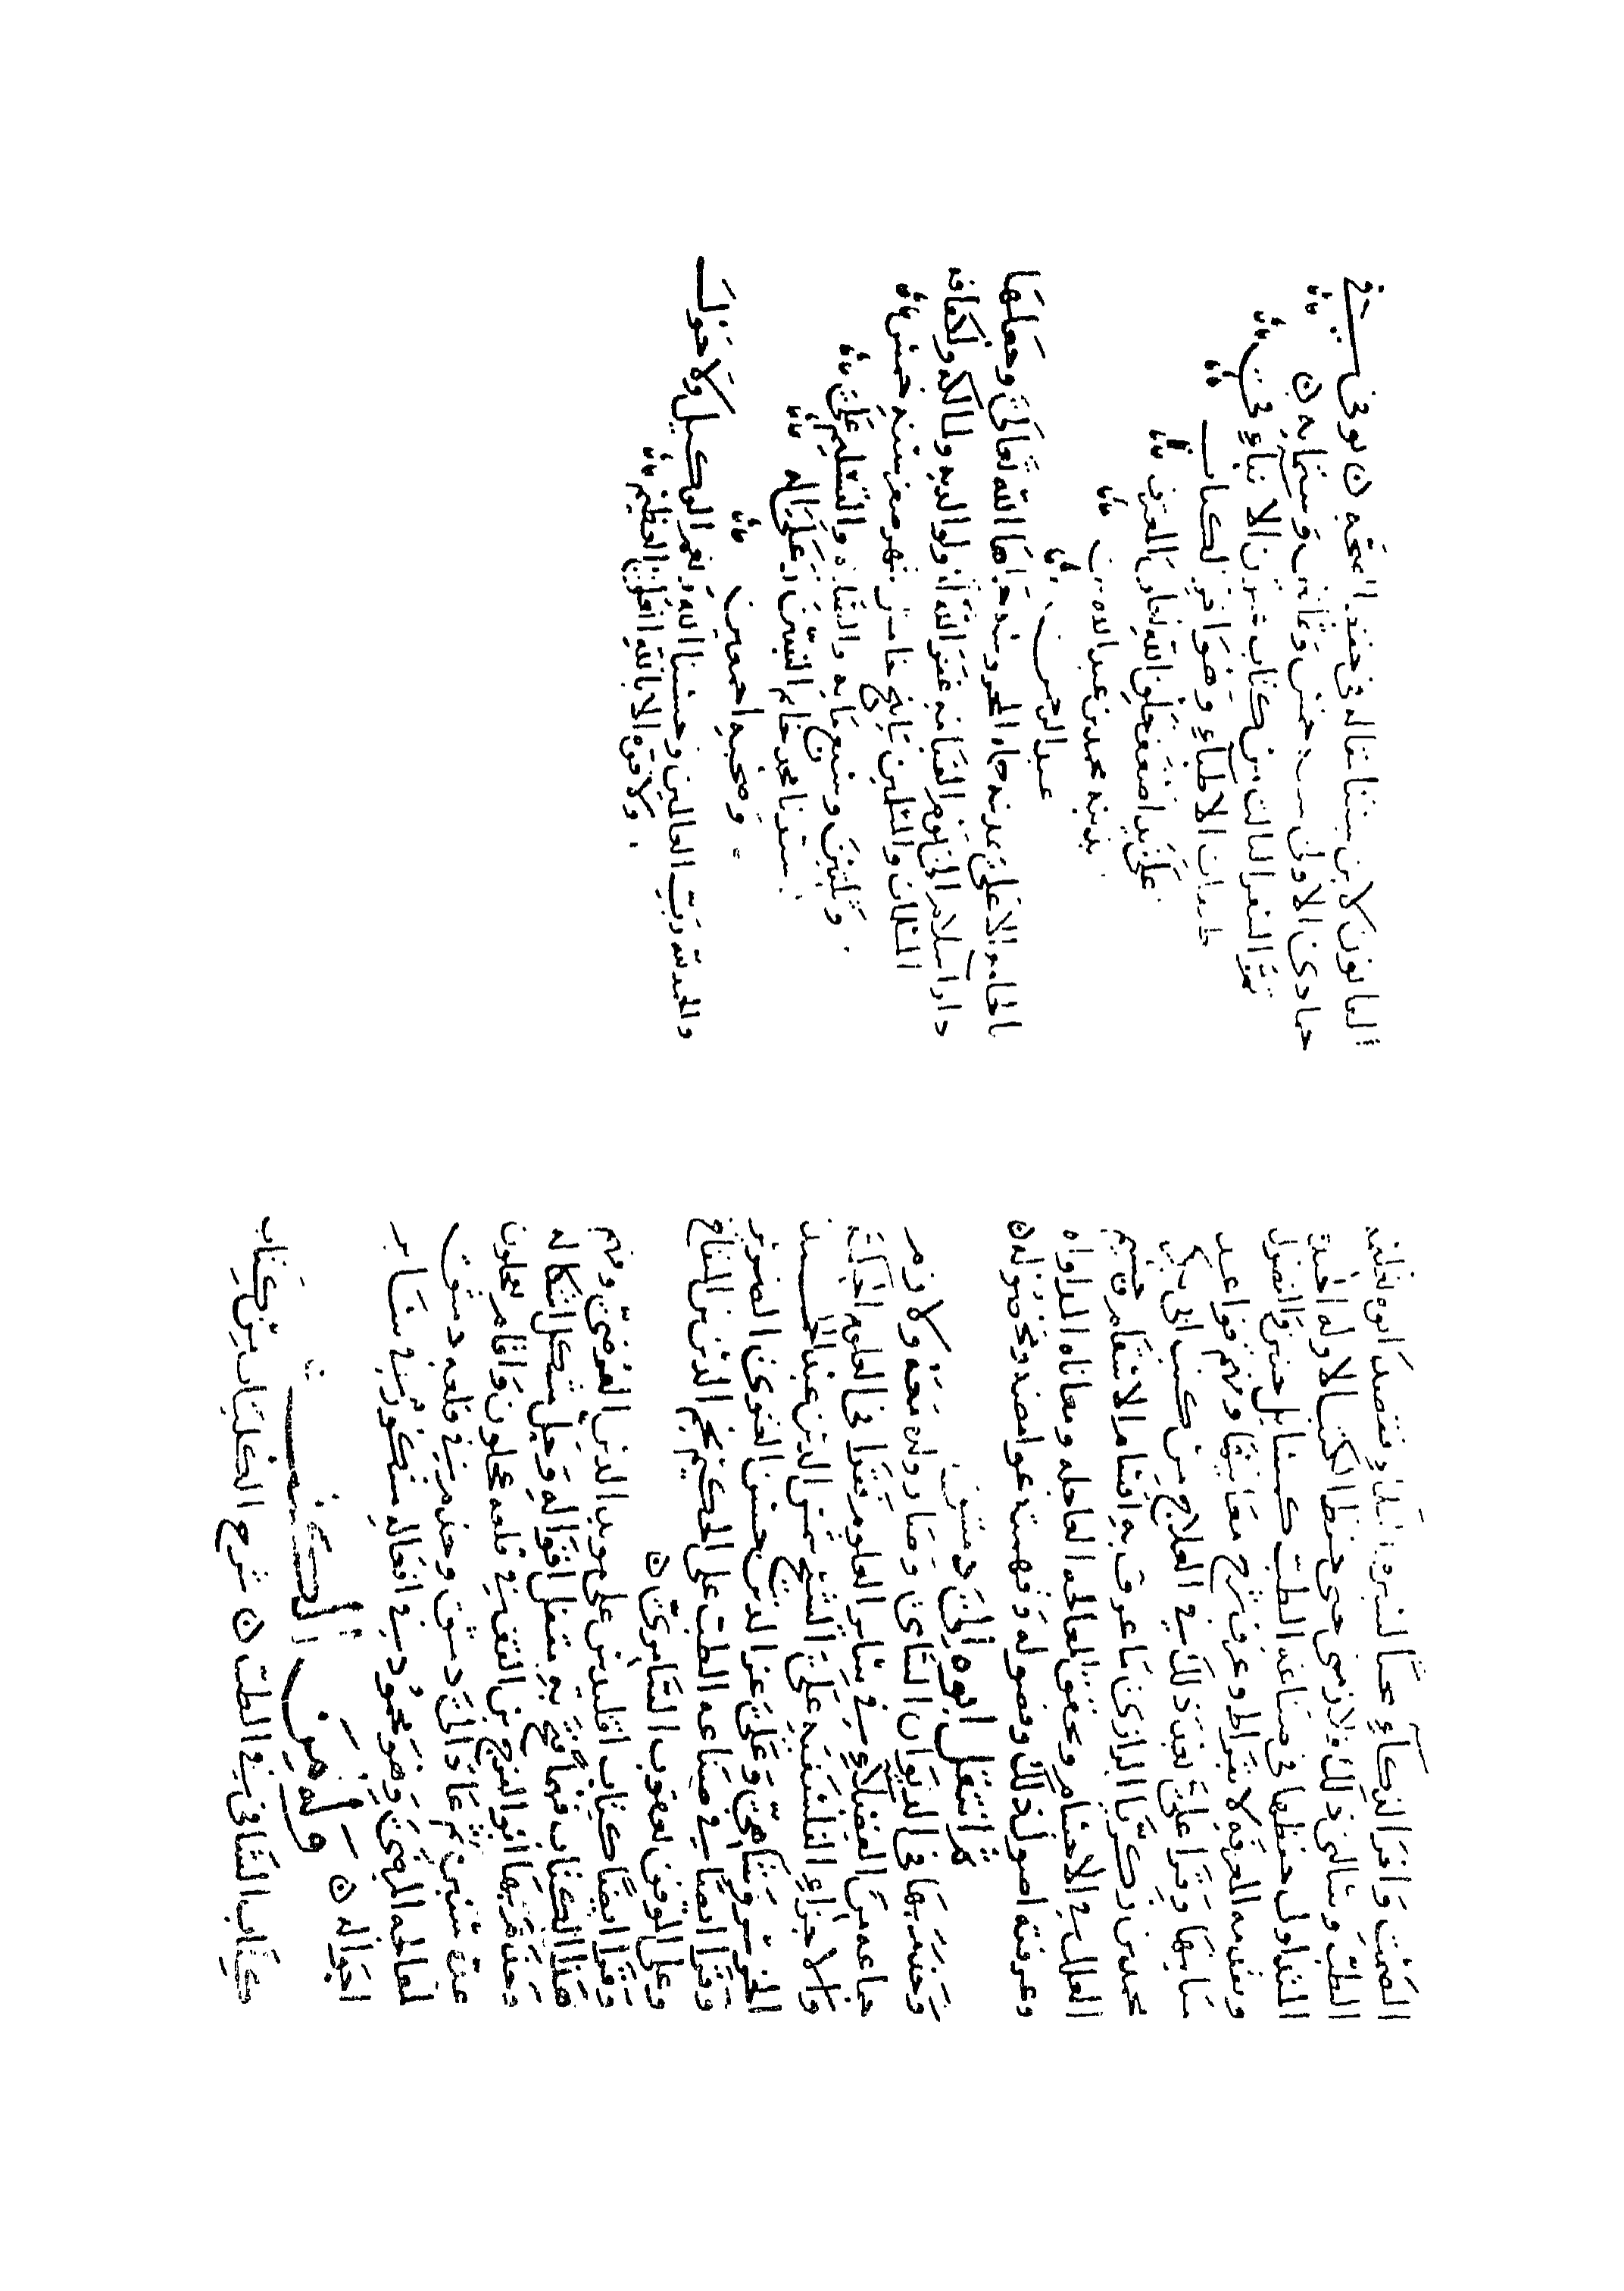 الصمت وافر الذكاء محبا لسيرة العلماء فقصد أبوه تعليمه
الطب وسألني ذلك فلازمني حتى حفظ الكتب الاولة الحذق
المتداول حفظها في صناعة الطب كمسائل حنين والفصول
وتقدمة المعرفة لابقراط وعرف شرح معانيها وفهم قواعد
مبانيها وقرأ علي بعد ذلك في العلاج من كتب ابي بكر
محمد بن زكريا الرازي ما عرف به اقسام الاسقام وجسيم
العلل في الاجسام وتحقق المعالجة العاجلة ومعاناة المداواة
وعرفته اصول ذلك وفصوله وفهمته غوامضه ومحصوله
ثم انتقل ابوه الى دمشق
وخدم بها في الديوان السامي وصار ولده معه ولازم
جماعة من الفضلاء فقرأ في العلوم الحكمية
والاجزاء الفلسفية على الشيخ شمس الدين عبد الحميد
الخسروشاهي وعلى عز الدين حسن الغنوي الضرير
وقرأ ايضا في صناعة الطب على الحكيم نجم الدين بن المنفاخ
وعلى الموفق يعقوب السامري
وقرأ ايضا كتاب اقليدس على مويد الدين العرضي وفهم
هذا الكتاب فهما فتح به مقفل اقواله وحل مشكل اشكاله
وخدم بها ابو الفرج بن القف في قلعة عجلون واقام بعجلون
عدة سنين ثم عاد الى دمشق وخدم في قلعة دمشق
لمعالجة المرضى وهو محمود في افعاله مشكور في سائر
احواله وله من الكتب
كتاب الشافي في الطب شرح الكليات من كتاب
القانون لابن سينا مقالة في حفظ الصحة توفي في
جمادى الاولى سنة خمس وثمانين وستمائة
تم السفر الثالث من كتاب عيون الانباء في
طبقات الاطباء وهو اخر الكتاب
على يد اضعف خلق الله تعالى المعترف
بذنبه محمد بن عبد الله بن
عبد الرحمن
الحامد الاعلى عدنه حماه المحروسة حماها الله تعالى وجعلها
دار اسلام الى يوم القيامة غفر الله له ولوالديه ولمالكه ولكافة
المسلمين تاريخ خامس شهر صفر سنة خمس
وثلثين وسبعمائة والصلاة والتسليم على
سيدنا محمد خاتم النبيين وعلى اله
وصحبه اجمعين
والحمد لله رب العالمين وحسبنا الله ونعم الوكيل ولا حول
ولا قوة الا بالله العلي العظيم